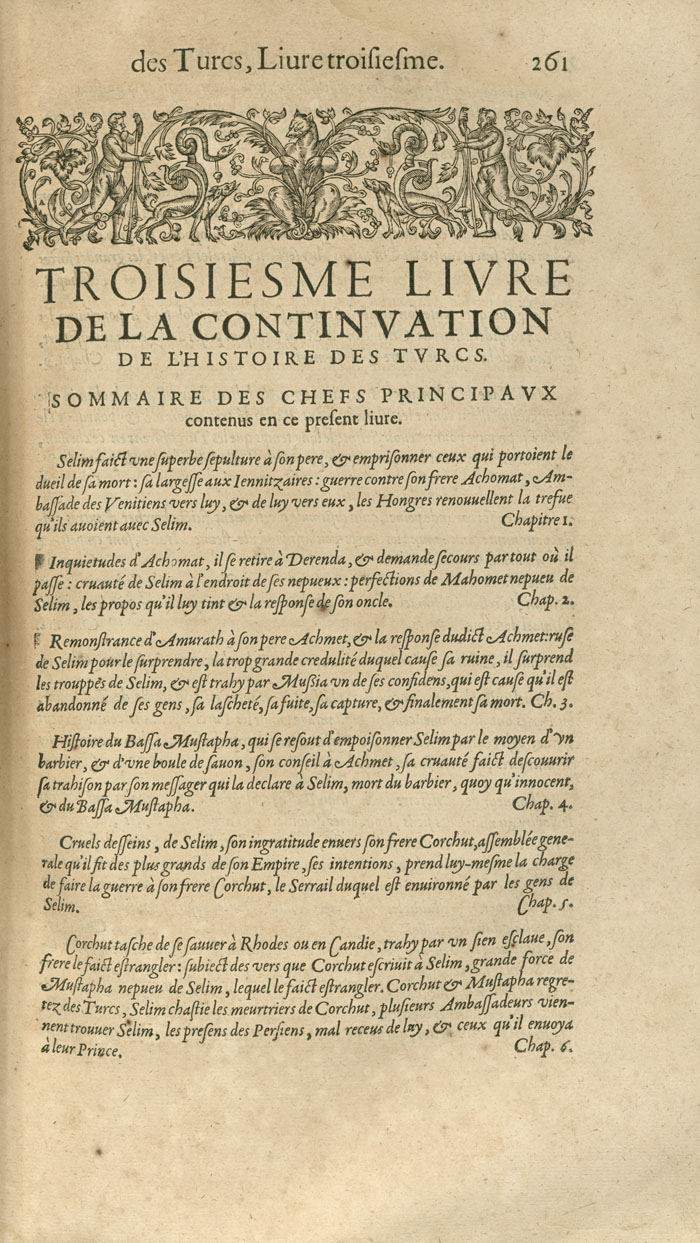 des Turcs, Liure troisiesme. 261
TROISIESME LIVRE
DE LA CONTINVATION
DE L'HISTOIRE DES TVRCS.
SOMMAIRE DES CHEFS PRINCIPAVX
contenus en ce present liure.
Selim faict vne superbe sepulture à son pere, & emprisonner ceux qui portoient le
dueil de sa mort : sa largesse aux Iennitzaires : guerre contre son frere Achomat, Am-
bassade des Venitiens vers luy, & de luy vers eux, les Hongres renouuellent la trefue
qu'ils auoient auec Selim. Chapitre 1.
Inquietudes d'Achomat, il se retire à Derenda, & demande secours par tout où il
passe : cruauté de Selim à l'endroit de ses nepueux : perfections de Mahomet nepueu de
Selim, les propos qu'il luy tint & la response de son oncle. Chap. 2.
Remonstrance d'Amurath à son pere Achmet, & la response dudict Achmet: ruse
de Selim pour le surprendre, la trop grande credulité duquel cause sa ruine, il surprend
les trouppes de Selim, & est trahy par Mussia vn de ses confidens, qui est cause qu'il est
abandonné de ses gens, sa lascheté, sa fuite, sa capture, & finalement sa mort. Ch. 3.
Histoire du Bassa Mustapha, qui se resout d'empoisonner Selim par le moyen d'vn
barbier, & d'vne boule de sauon, son conseil à Achmet, sa cruauté faict descouurir
sa trahison par son messager qui la declare à Selim, mort du barbier, quoy qu'innocent,
& du Bassa Mustapha. Chap. 4.
Cruels desseins, de Selim, son ingratitude enuers son frere Corchut, assemblée gene-
rale qu'il fit des plus grands de son Empire, ses intentions, prend luy-mesme la charge
de faire la guerre à son frere Corchut, le Serrail duquel est enuironné par les gens de
Selim. Chap. 5.
Corchut tasche de se sauuer à Rhodes ou en Candie, trahy par vn sien esclaue, son
frere le faict estrangler : subiect des vers que Corchut escriuit à Selim, grande force de
Mustapha nepueu de Selim, lequel le faict estrangler. Corchut & Mustapha regre-
tez des Turcs, Selim chastie les meurtriers de Corchut, plusieurs Ambassadeurs vien-
nent trouuer Selim, les presens des Persiens, mal receus de luy, & ceux qu'il enuoya
à leur Prince. Chap. 6.